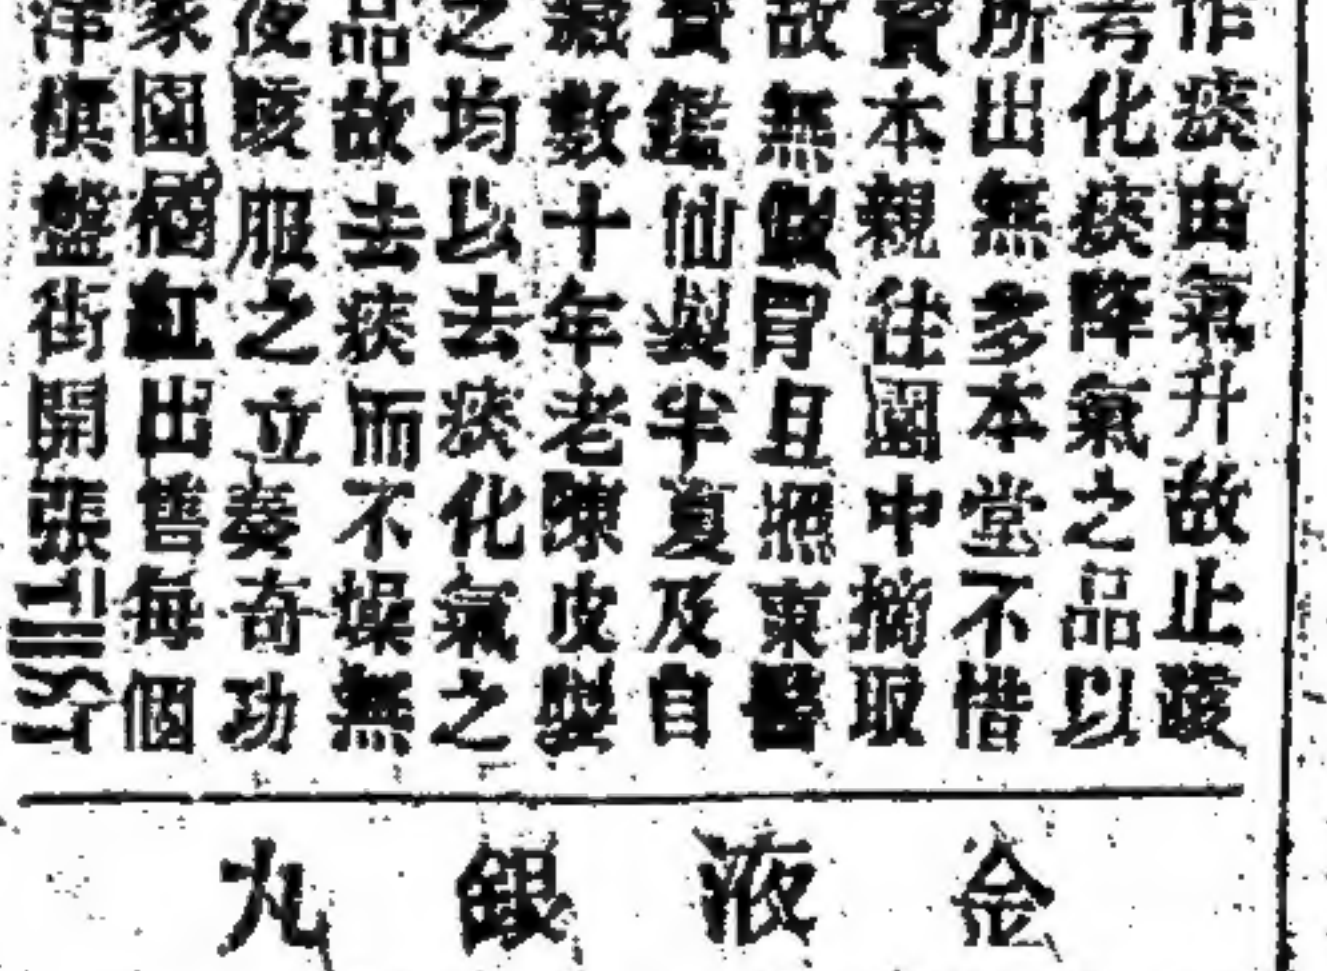 作痰由氣升故止咳
考化痰降氣之品以
所出無多本堂不惜
資本親往園中摘取
故無假冒且照東醫
寶鑑仙製半夏及自
藏數十年老陳皮製
之均以去痰化氣之
品故去痰而不燥無
夜咳服之立奏奇功
家園橘紅出售每個
洋棋盤街開張
金液銀丸